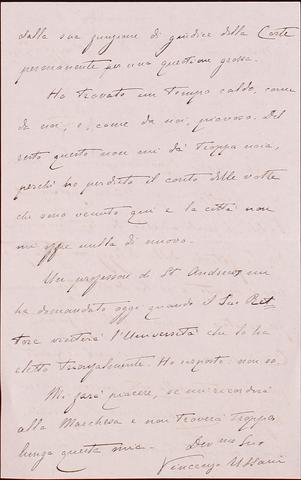 dalla sua funzione di giudice della Corte
permanente per una questione grossa.
Ho trovato un tempo caldo, come
da noi, e, come da noi, piovoso. Del
resto questo non mi dà troppa noia,
perchè ho perduto il conto delle volte
che sono venuto qui e la città non
mi offre nulla di nuovo.
Un professore di St Andrews mi
ha domandato oggi quando il Suo Ret
tore visiterà l'Università che lo ha
eletto trionfalmente. Ho risposto: non so.
Mi farà piacere, se mi ricorderà
alla Marchesa e non troverà troppo
lunga questa mia. Devmo Suo
Vincenzo Ussani